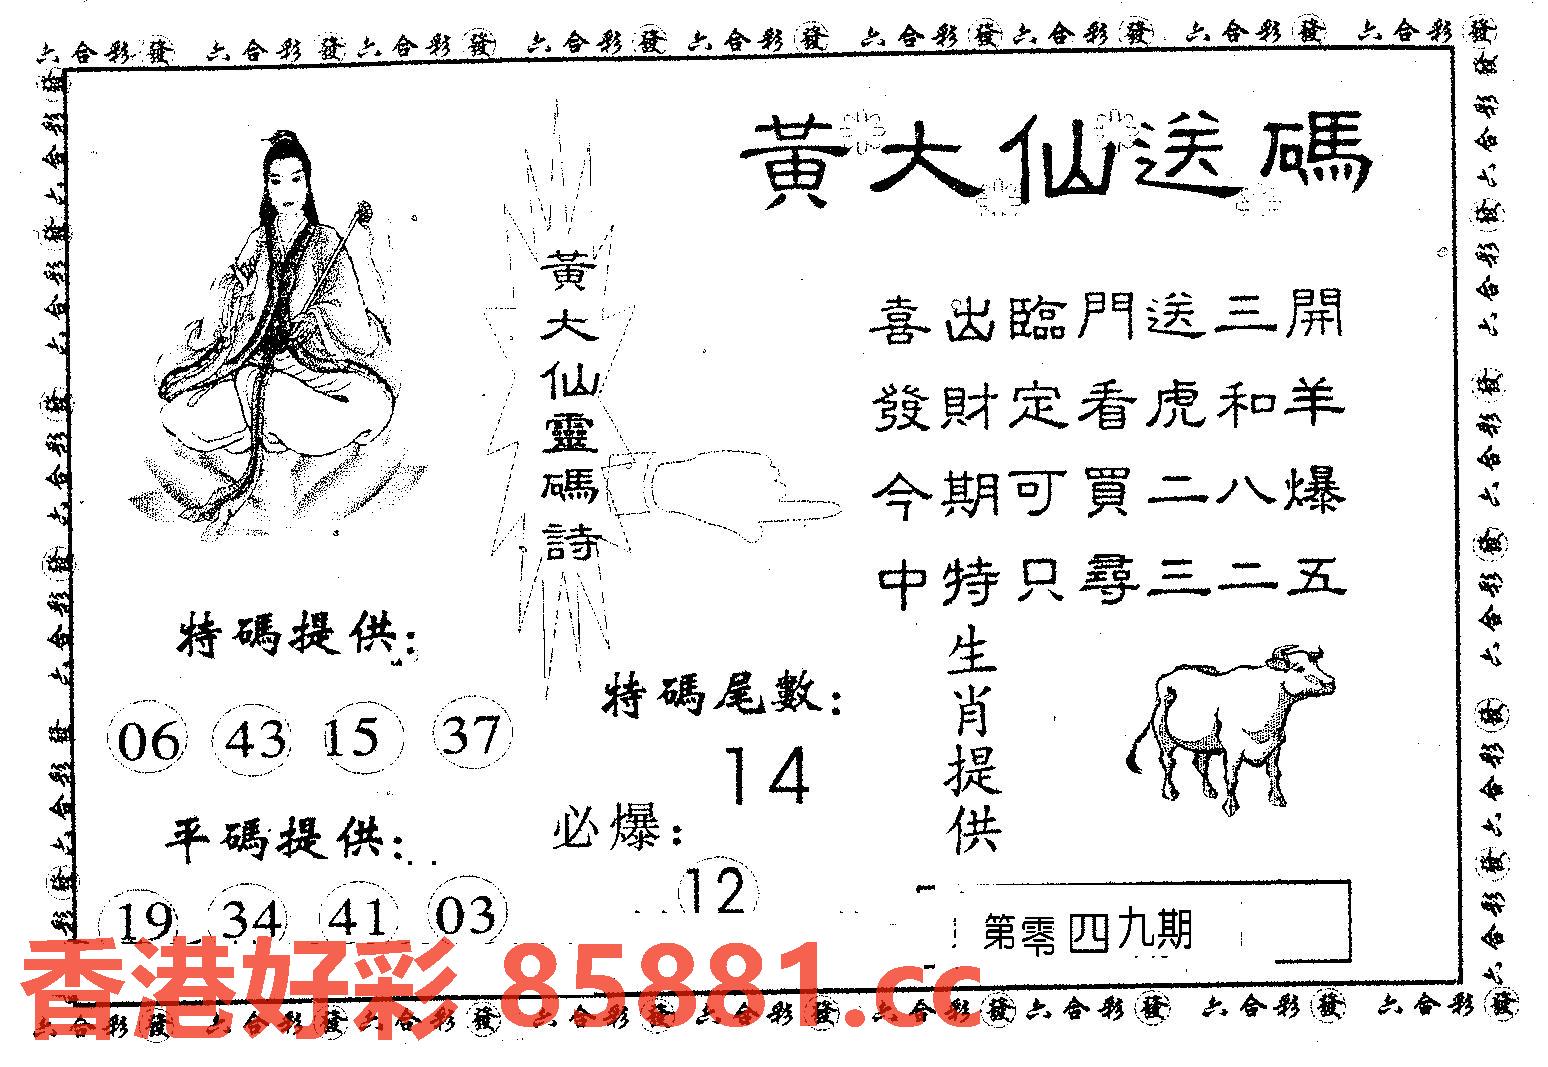 六合彩發 六合彩發 六合彩發 六合彩發 六合彩發 六合彩發 六合彩發 六合彩發 六合彩發
黃大仙送碼
黃大仙靈碼詩
喜出臨門送三開
發財定看虎和羊
今期可買二八爆
中特只尋三二五
特碼提供:
06 43 15 37
平碼提供:
19 34 41 03
特碼尾數:
14
必爆:
12
生肖提供
第零四九期
香港好彩 85881.cc
六合彩發 六合彩發 六合彩發 六合彩發 六合彩發 六合彩發 六合彩發 六合彩發 六合彩發